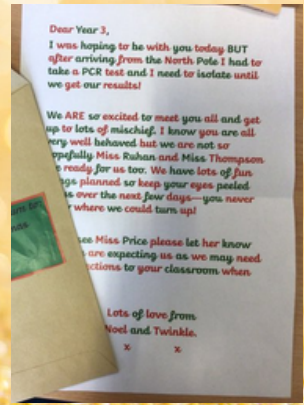 Dear Year 3,
I was hoping to be with you today BUT
after arriving from the North Pole I had to
take a PCR test and I need to isolate until
we get our results!
We ARE so excited to meet you all and get
up to lots of mischief. I know you are all
very well behaved but we are not so
opefully Miss Ruhan and Miss Thompson
ready for us too. We have lots of fun
gs planned so keep your eyes peeled
us over the next few days—you never
where we could turn up!
see Miss Price please let her know
are expecting us as we may need
ctions to your classroom when
Lots of love from
Noel and Twinkle.
x x